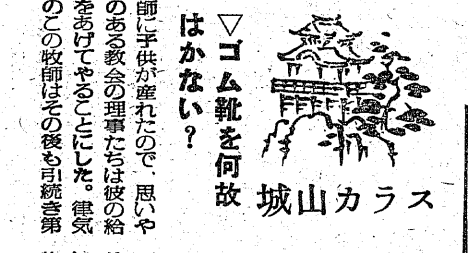 城山カラス
▽ゴム靴を何故
はかない?
師に子供が産れたので、思いや
のある教会の理事たちは彼の給
をあげてやることにした。律気
のこの牧師はその後も引続き第